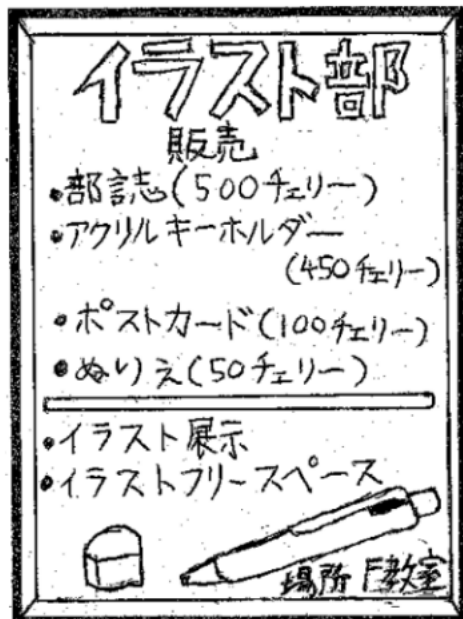 イラスト部
販売
・部誌(500チェリー)
・アクリルキーホルダー
(450チェリー)
・ポストカード(100チェリー)
・ぬりえ(50チェリー)
・イラスト展示
・イラストフリースペース
場所 F教室